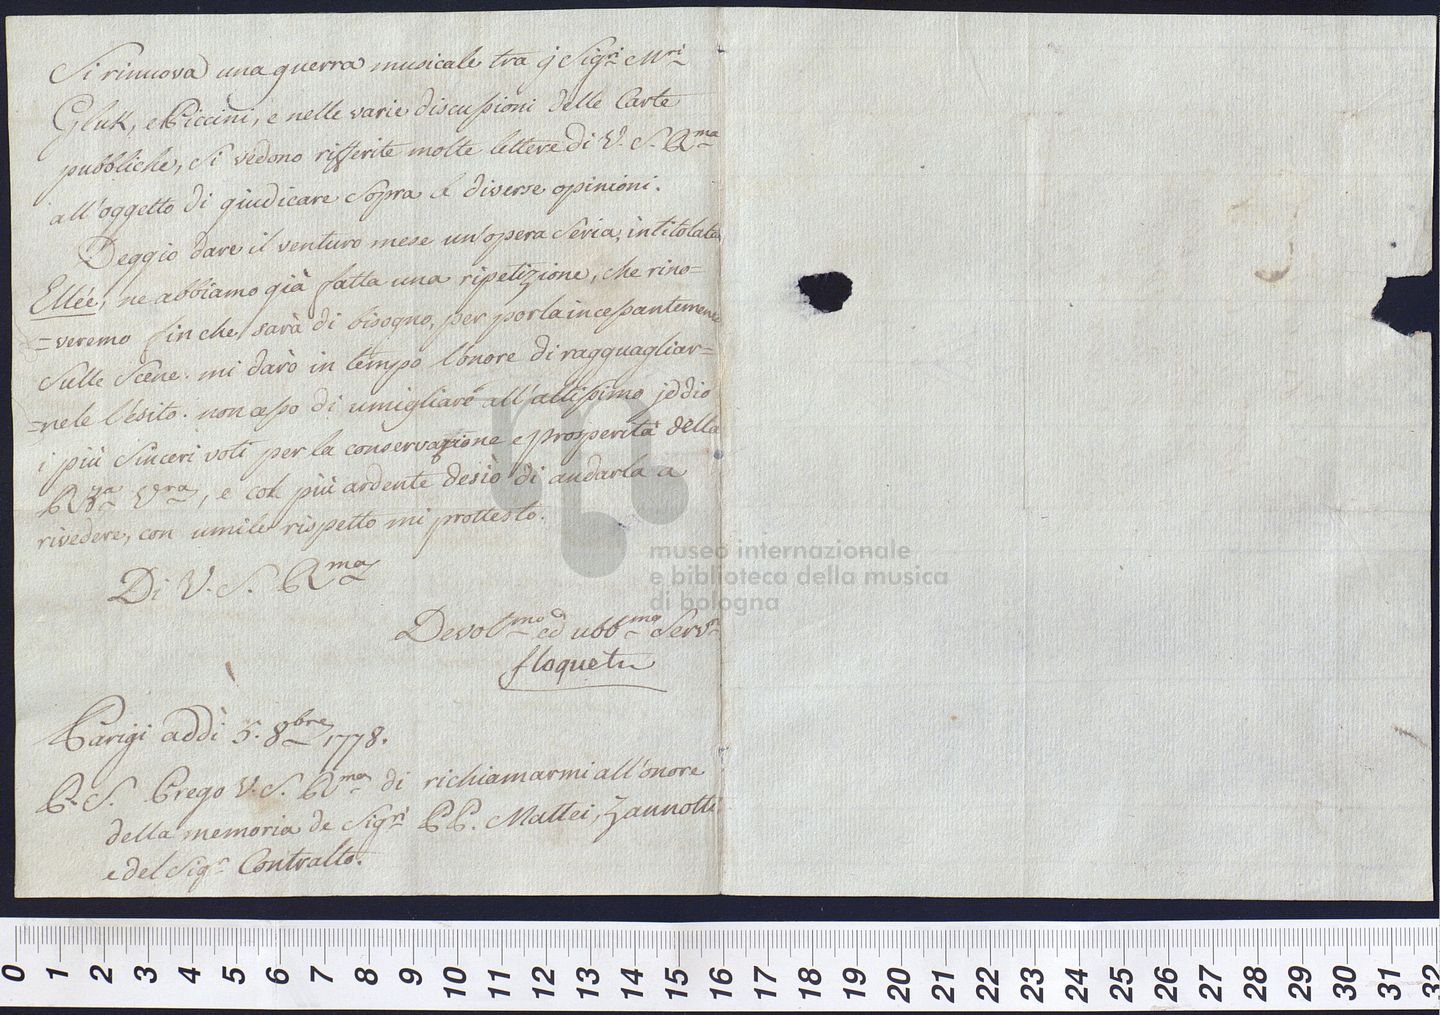 Si rinuova una guerra musicale tra j Sigri Mri
Gluk, e Piccini, e nelle varie discussioni delle Carte
pubbliche, si vedono rifferite molte lettere di V. S. Rma
all'oggetto di giudicare sopra le diverse opinioni.
Deggio dare il venturo mese un'opera Seria, intitolata
Ellée, ne abbiamo già fatta una ripetizione, che rino=
=veremo finche sarà di bisogno, per porla incessantemente
sulle Scene. mi darò in tempo l'onore di ragguagliar=
=nele l'esito. non cesso di umigliare all'altissimo jddio
i più sinceri voti per la conservazione e prosperità della
Rza Vra, e col più ardente desiò di andarla a
rivedere, con umile rispetto mi prottesto.
Di V. S. Rma
Devolmo ed ubbmo Servr
floquet
Parigi addì 5. 8bre 1778.
P. S. Prego V. S. Rma di richiamarmi all'onore
della memoria de Sigri PP. Mattei, Zannotti,
e del Sigr Contralto.
museo internazionale
e biblioteca della musica
di bologna
0 1 2 3 4 5 6 7 8 9 10 11 12 13 14 15 16 17 18 19 20 21 22 23 24 25 26 27 28 29 30 31 32